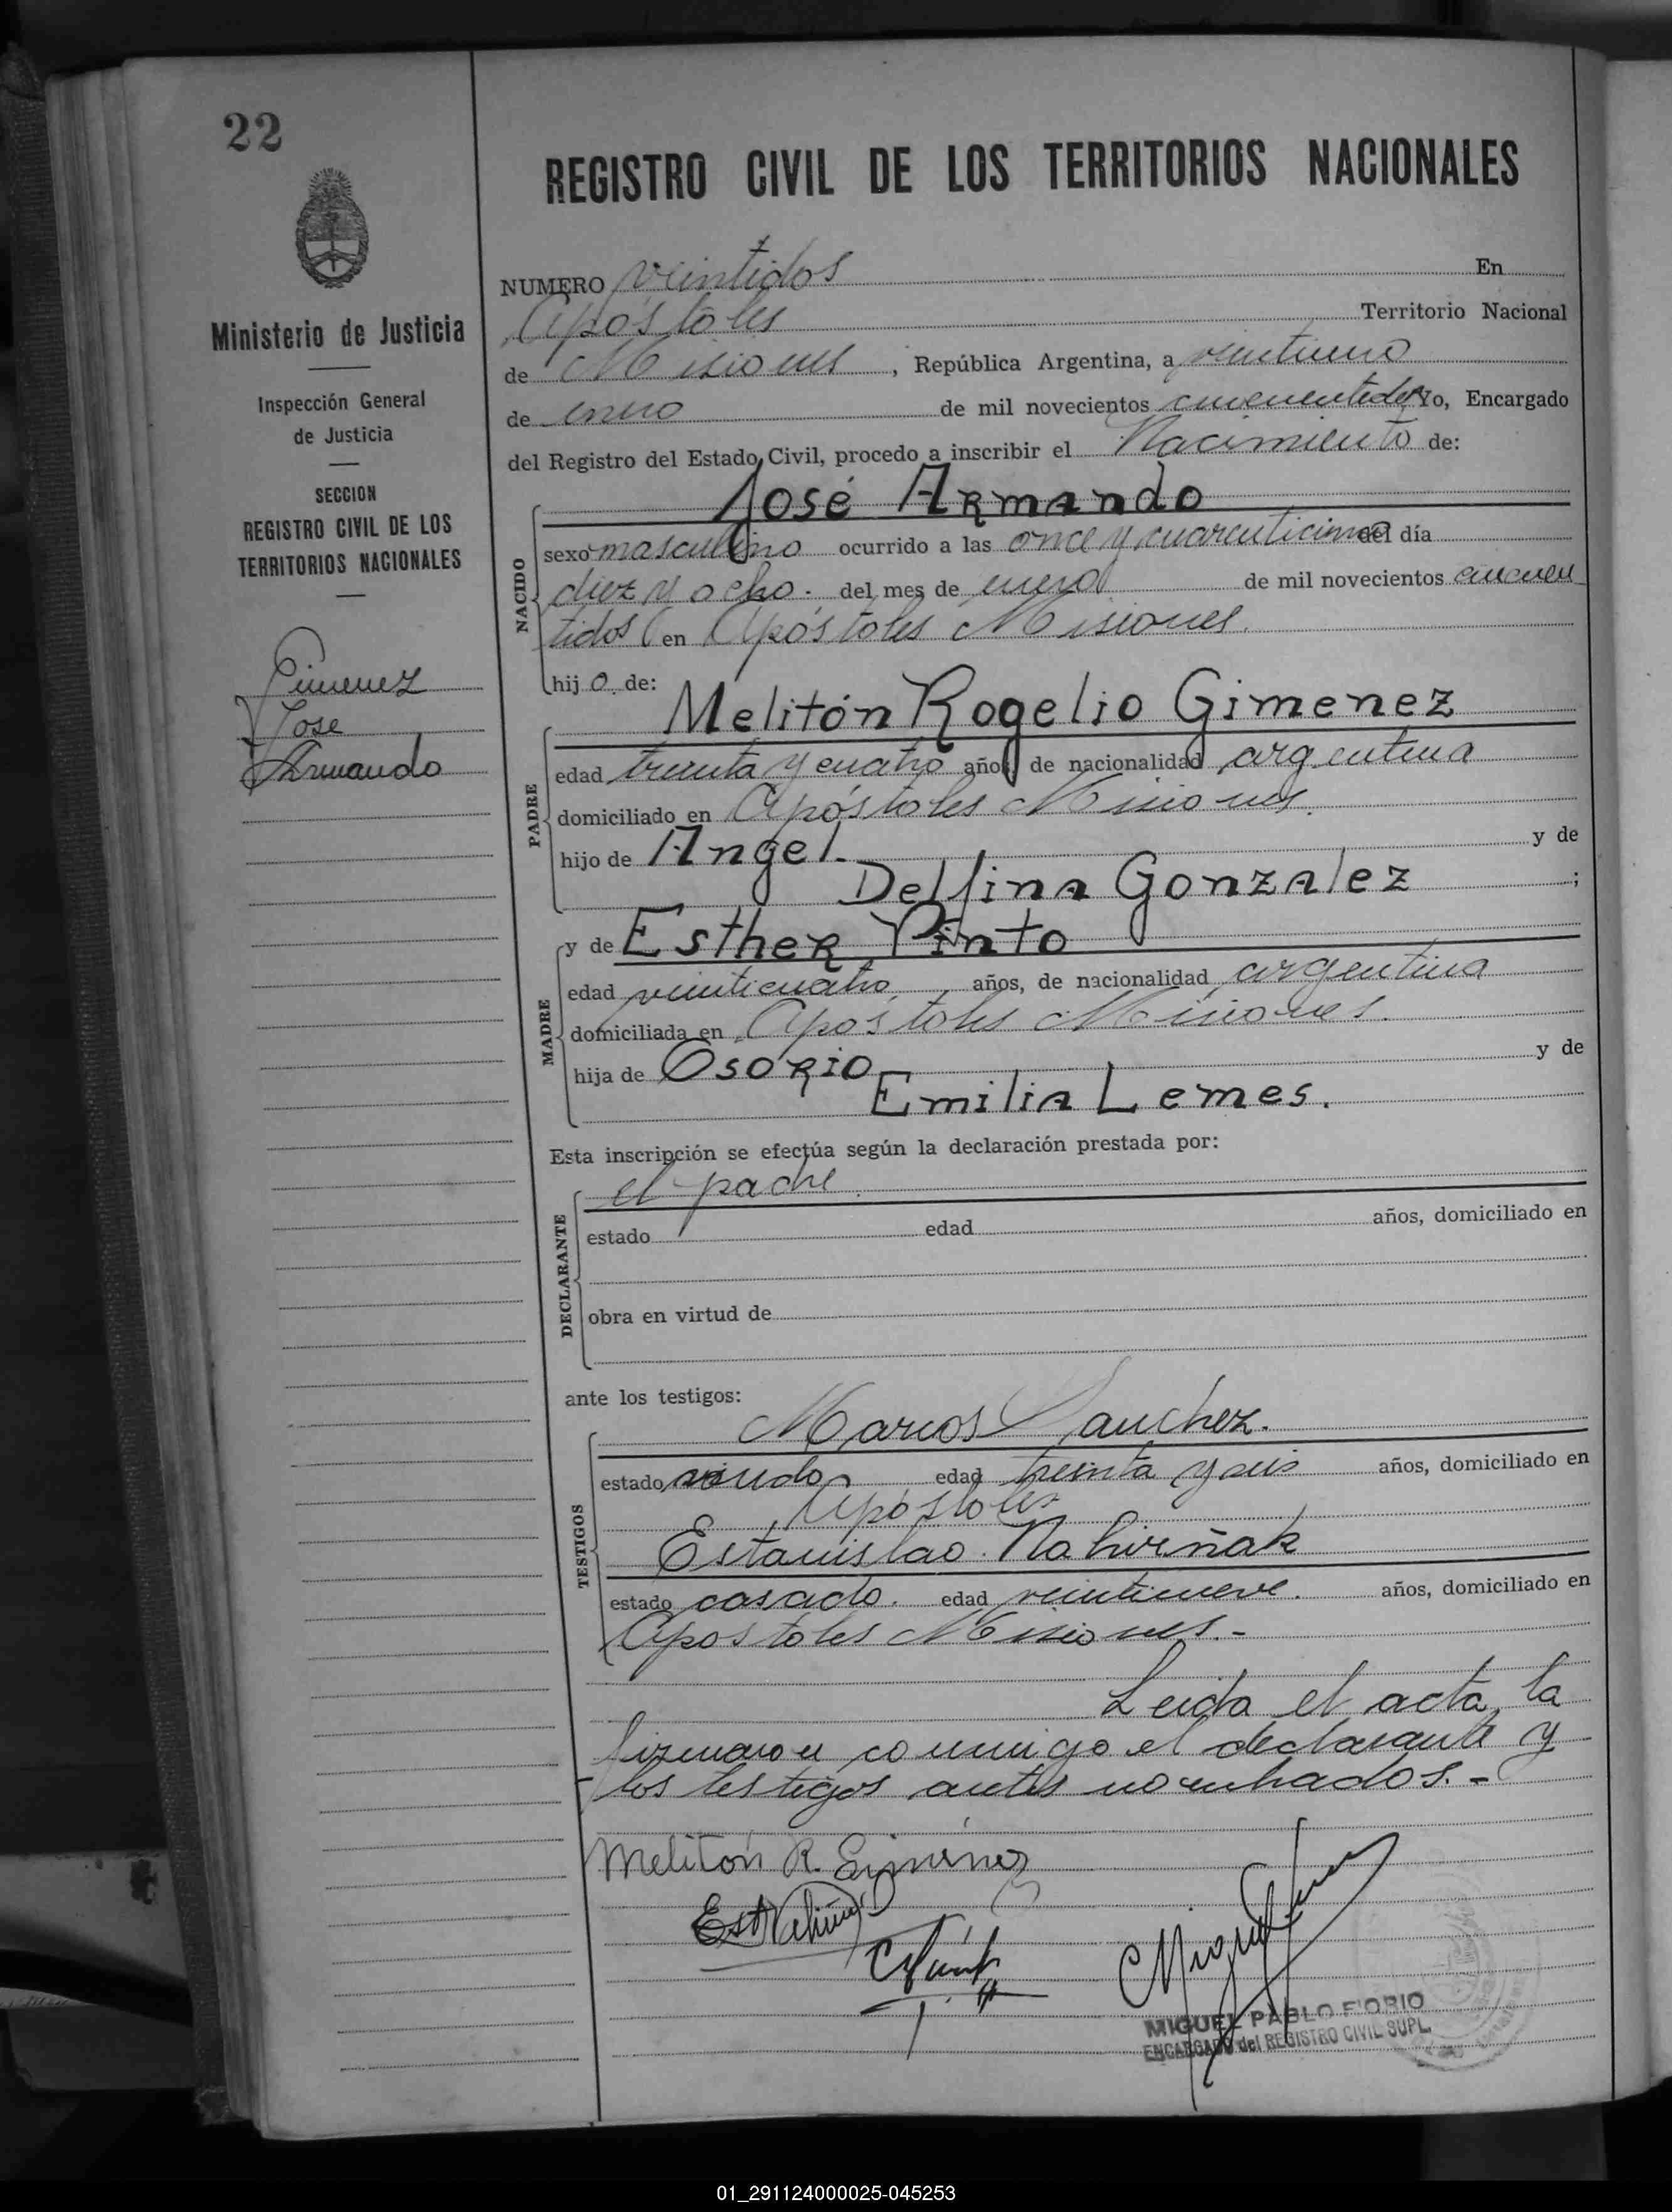 22
Ministerio de Justicia
Inspección General
de Justicia
SECCION
REGISTRO CIVIL DE LOS
TERRITORIOS NACIONALES
Gimenez
Jose
Armando
REGISTRO CIVIL DE LOS TERRITORIOS NACIONALES
NUMERO veintidos En
Apóstoles Territorio Nacional
de Misiones, República Argentina, a veintiuno
de enero de mil novecientos cincuentidos Yo, Encargado
del Registro del Estado Civil, procedo a inscribir el Nacimiento de:
NACIDO
José Armando
sexo masculino ocurrido a las once y cuarenticinco del día
diez y ocho. del mes de enero de mil novecientos cincuen
tidos en Apóstoles Misiones.
hijo de:
PADRE
Melitón Rogelio Gimenez
edad treinta y cuatro años, de nacionalidad argentina
domiciliado en Apóstoles Misiones.
hijo de Angel. y de
Delfina Gonzalez ;
MADRE
y de Esther Pinto
edad veinticuatro años, de nacionalidad argentina
domiciliada en Apóstoles Misiones.
hija de Osorio y de
Emilia Lemes.
Esta inscripción se efectúa según la declaración prestada por:
DECLARANTE
el padre
estado edad años, domiciliado en
obra en virtud de
ante los testigos:
TESTIGOS
Marcos Sanchez.
estado viudo edad treinta y seis años, domiciliado en
Apóstoles
Estanislao Nahirñak
estado casado. edad veintinueve. años, domiciliado en
Apostoles Misiones.-
Leida el acta, la
firmaron conmigo el declarante y
los testigos antes nombrados.-
Melitón R. Gimenez
MIGUEL PABLO FIORIO
ENCARGADO del REGISTRO CIVIL SUPL.
01_291124000025-045253